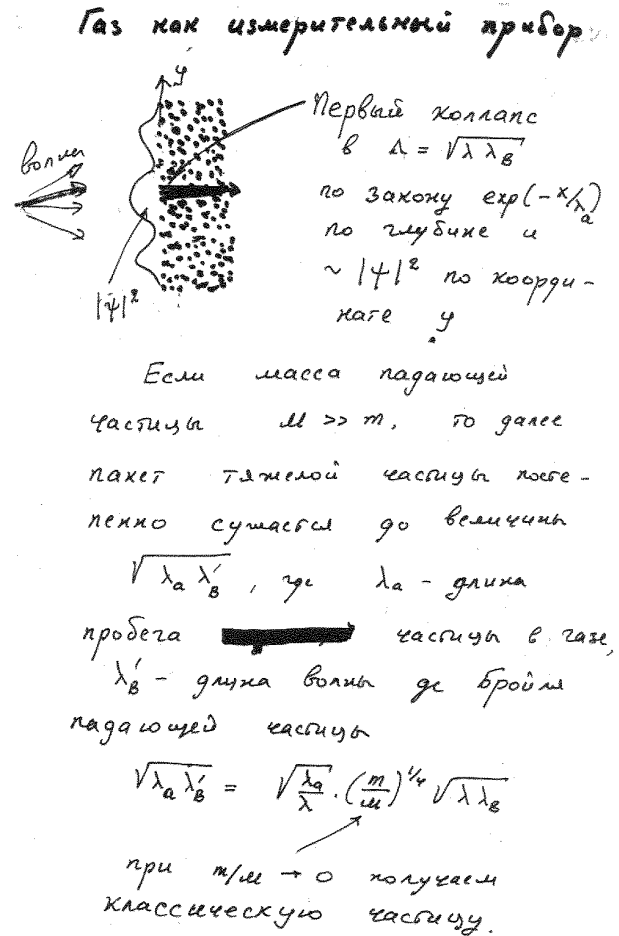 Газ как измерительный прибор
y
волны
|ψ|²
Первый коллапс
в Λ = √λ λ_B
по закону exp(-x/λ_a)
по глубине и
~ |ψ|² по коорди-
нате y
Если масса падающей
частицы M >> m, то далее
пакет тяжелой частицы посте-
пенно сужается до величины
√λ_a λ'_B , где λ_a - длина
пробега частицы в газе,
λ'_B - длина волны де Бройля
падающей частицы
√λ_a λ'_B = √λ_a/λ · (m/M)^1/4 √λ λ_B
при m/M → 0 получаем
классическую частицу.